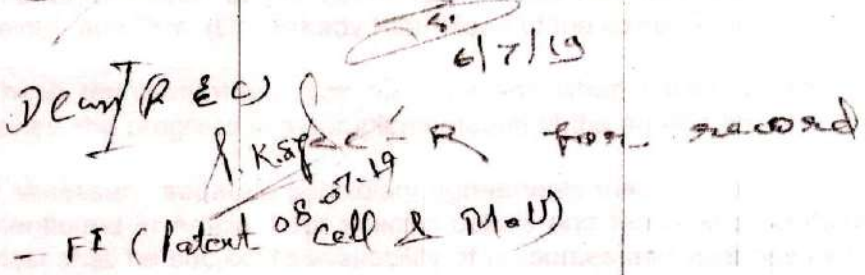 6/7/19
Dean (R & C)
R for record
08-07-19
- FI (Patent Cell & MoU)